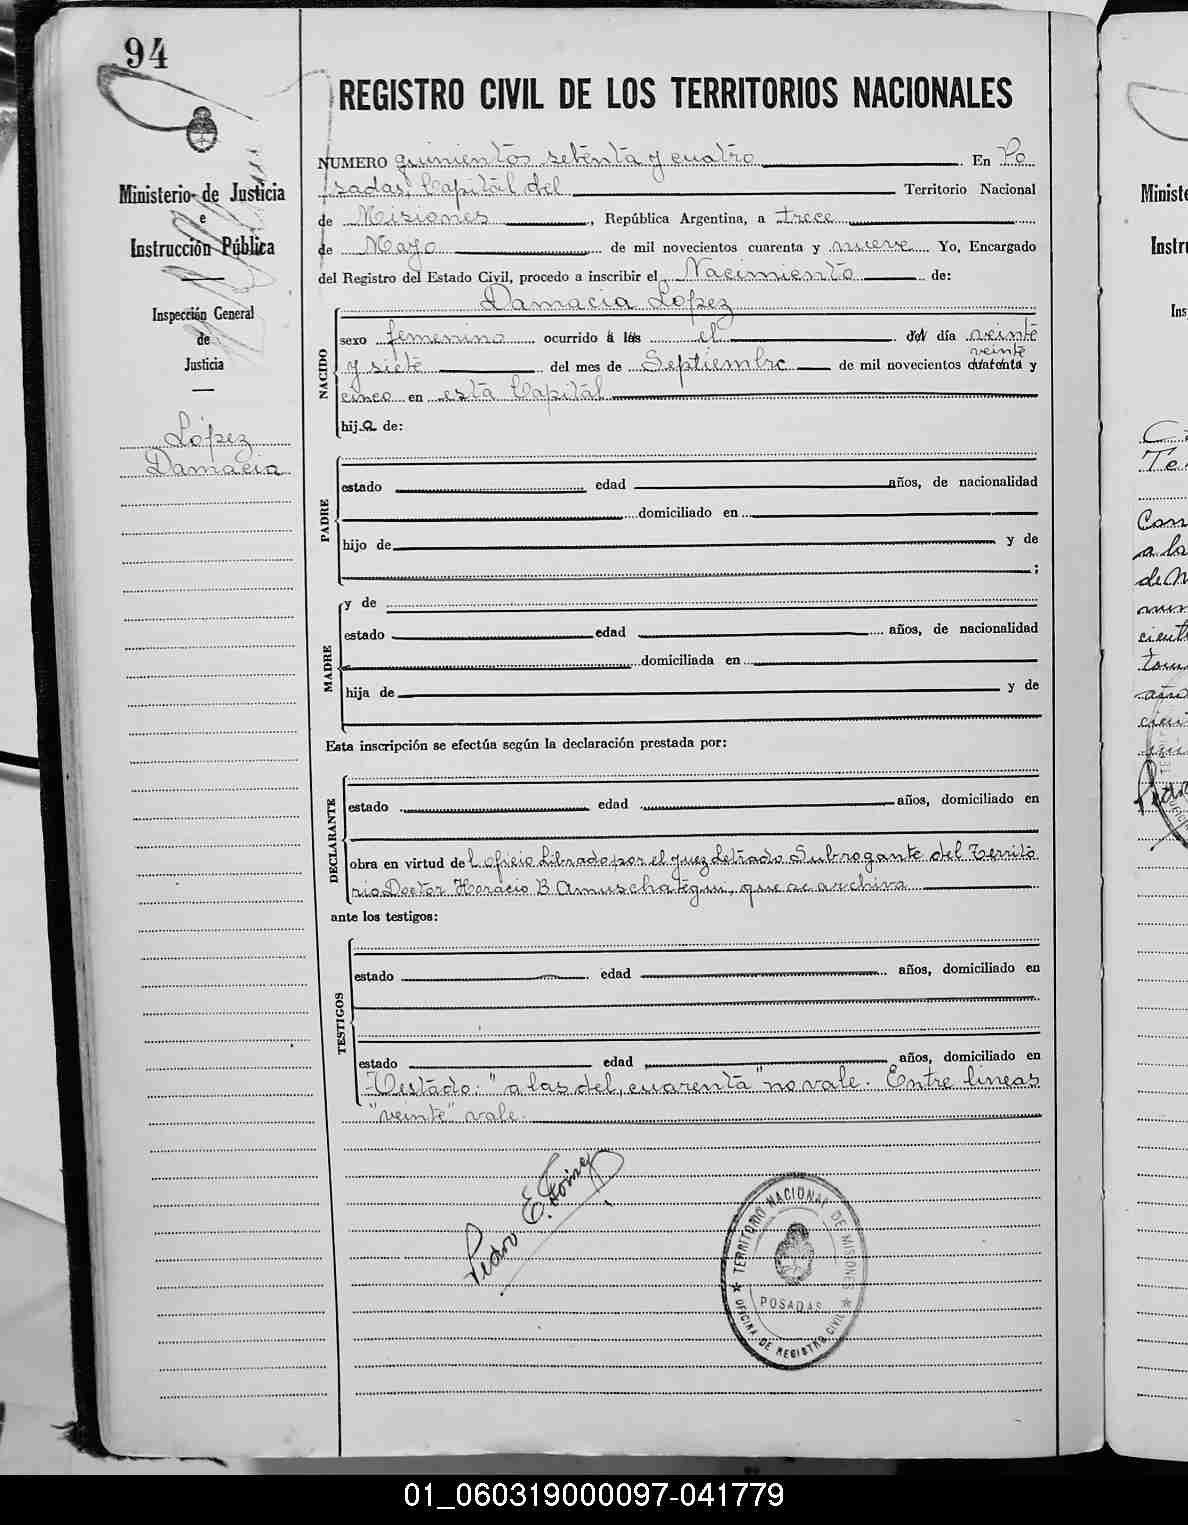 94
REGISTRO CIVIL DE LOS TERRITORIOS NACIONALES
Ministerio de Justicia
e
Instrucción Pública
Inspección General
de
Justicia
López
Damacia
NUMERO quinientos setenta y cuatro En Po
sadas, Capital del Territorio Nacional
de Misiones, República Argentina, a trece
de Mayo de mil novecientos cuarenta y nueve Yo, Encargado
del Registro del Estado Civil, procedo a inscribir el Nacimiento de:
Damacia López
NACIDO
sexo femenino ocurrido a las el del día veinte
veinte
y siete del mes de Septiembre de mil novecientos cuarenta y
cinco en esta Capital
hija de:
PADRE
estado edad años, de nacionalidad
domiciliado en
hijo de y de
;
MADRE
y de
estado edad años, de nacionalidad
domiciliada en
hija de y de
Esta inscripción se efectúa según la declaración prestada por:
DECLARANTE
estado edad años, domiciliado en
obra en virtud del oficio librado por el Juez Letrado Subrogante del Territo
rio Doctor Horacio B. Amuschategui, que se archiva
ante los testigos:
TESTIGOS
estado edad años, domiciliado en
estado edad años, domiciliado en
Testado: "a las del, cuarenta" no vale. Entre lineas
"veinte" vale.
Pedro E.
TERRITORIO NACIONAL DE MISIONES
POSADAS
OFICINA DE REGISTRO CIVIL
Minist
Instr
Ins
01_060319000097-041779